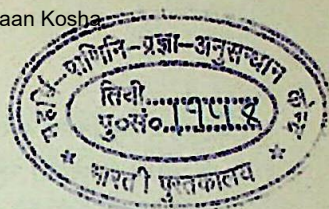 aan Kosha
महर्षि-पाणिनि-प्रज्ञा-अनुसन्धान केन्द्र
तिथी..........
पु०सं०..1754
* भारती पुस्तकालय *